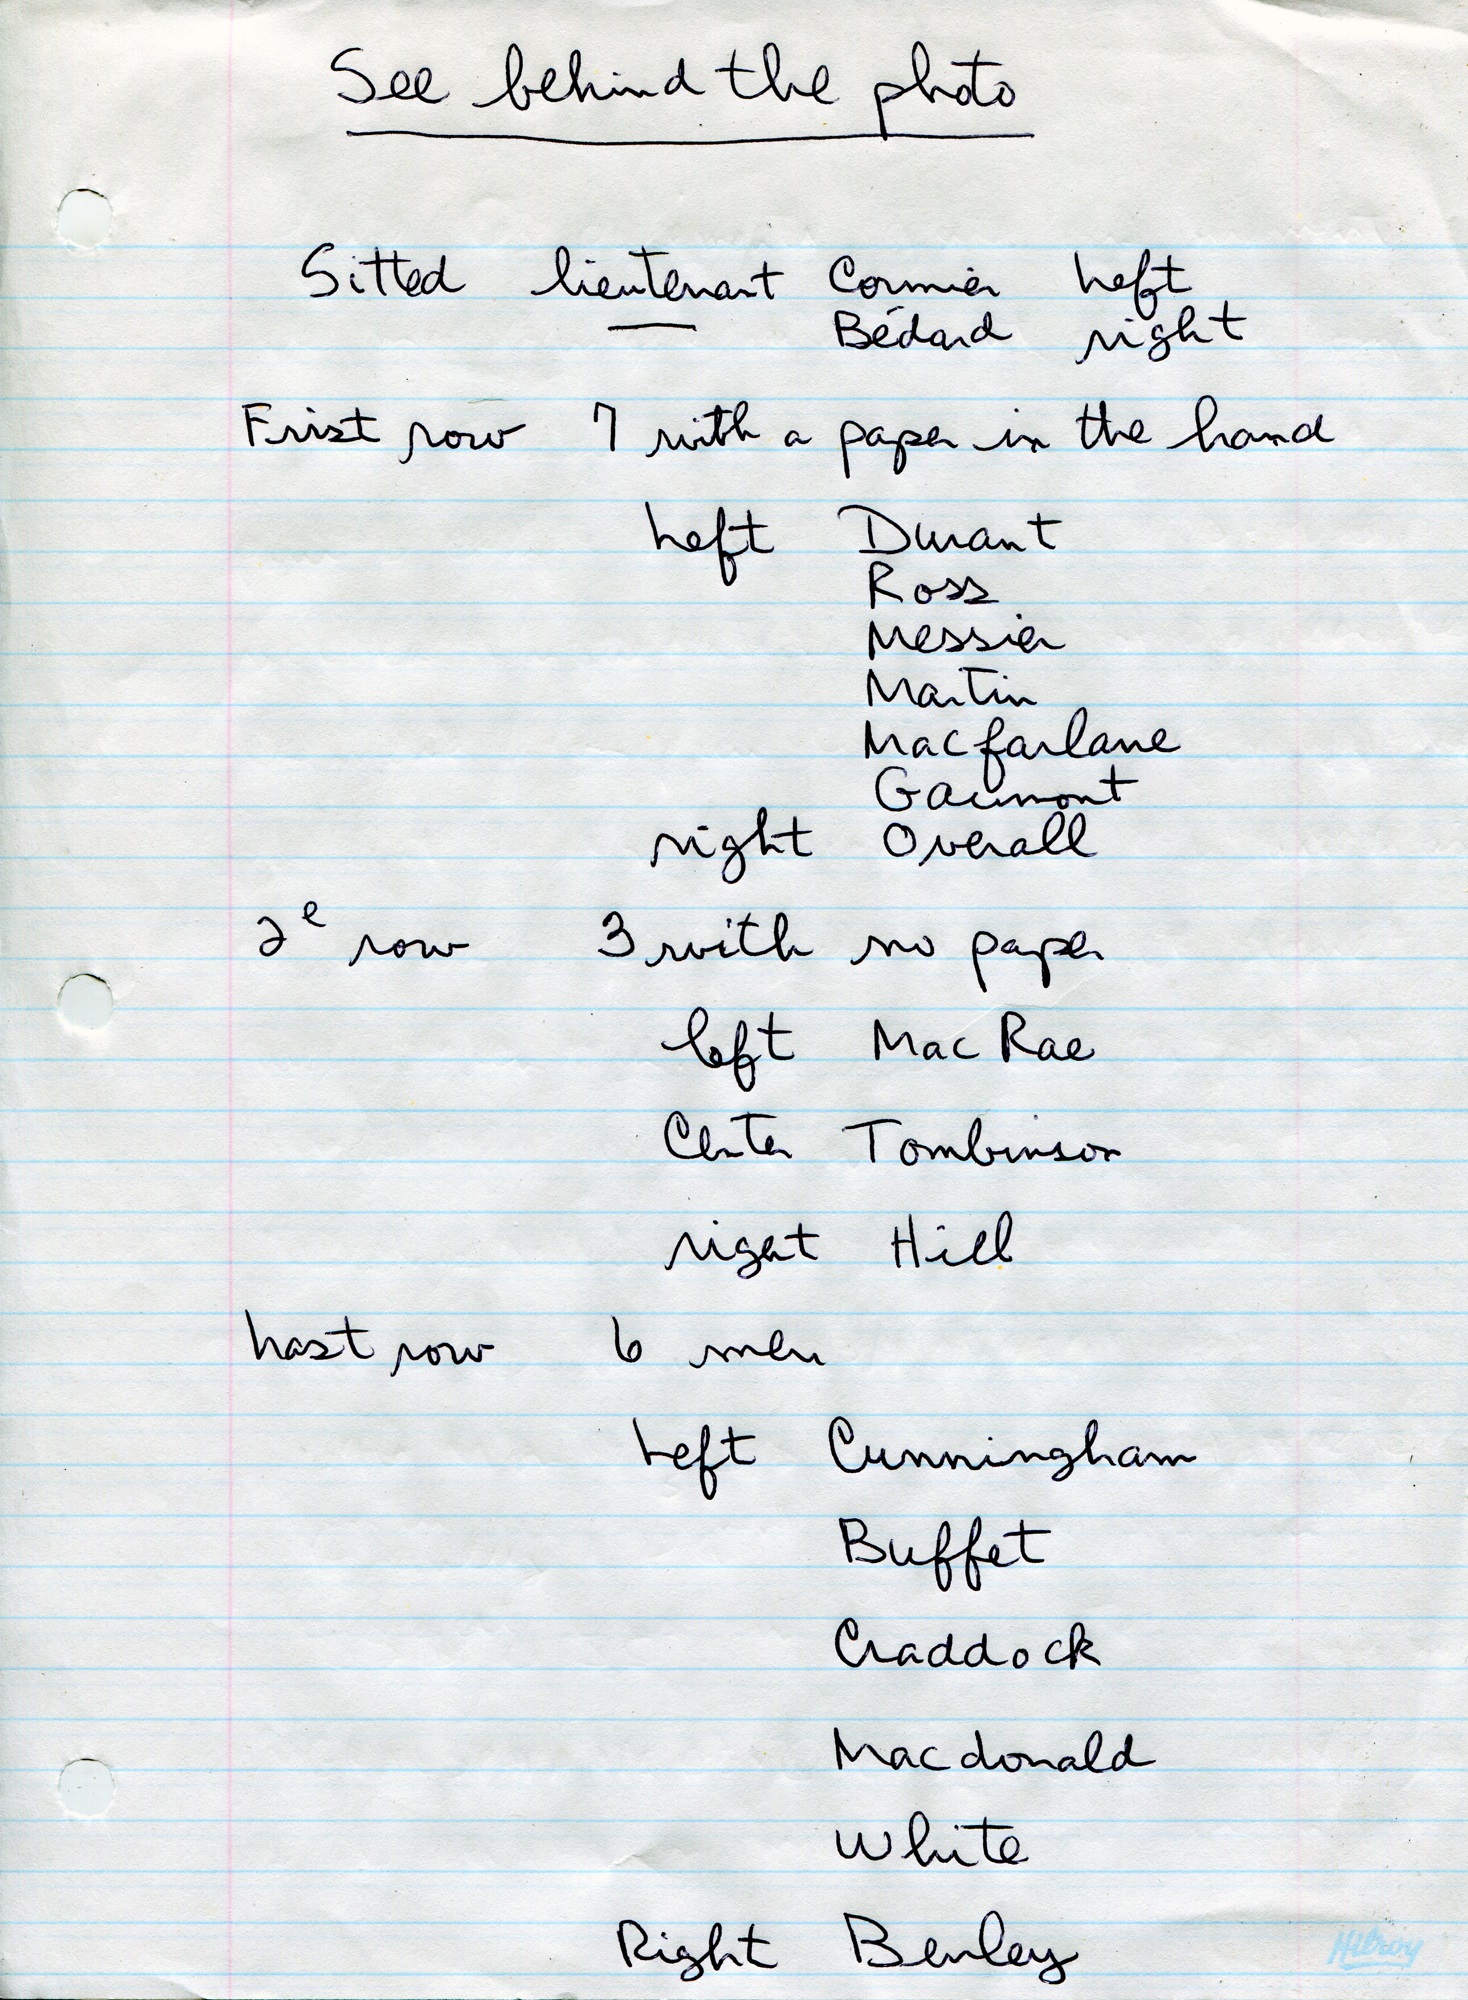 See behind the photo
Sitted lieutenant Cormier Left
Bédard right
First row 7 with a paper in the hand
Left Durant
Ross
Messier
Martin
Macfarlane
Gaumont
right Overall
2e row 3 with no paper
left MacRae
Center Tombinson
right Hill
Last row 6 men
Left Cunningham
Buffet
Craddock
Macdonald
White
Right Benley
Hilroy